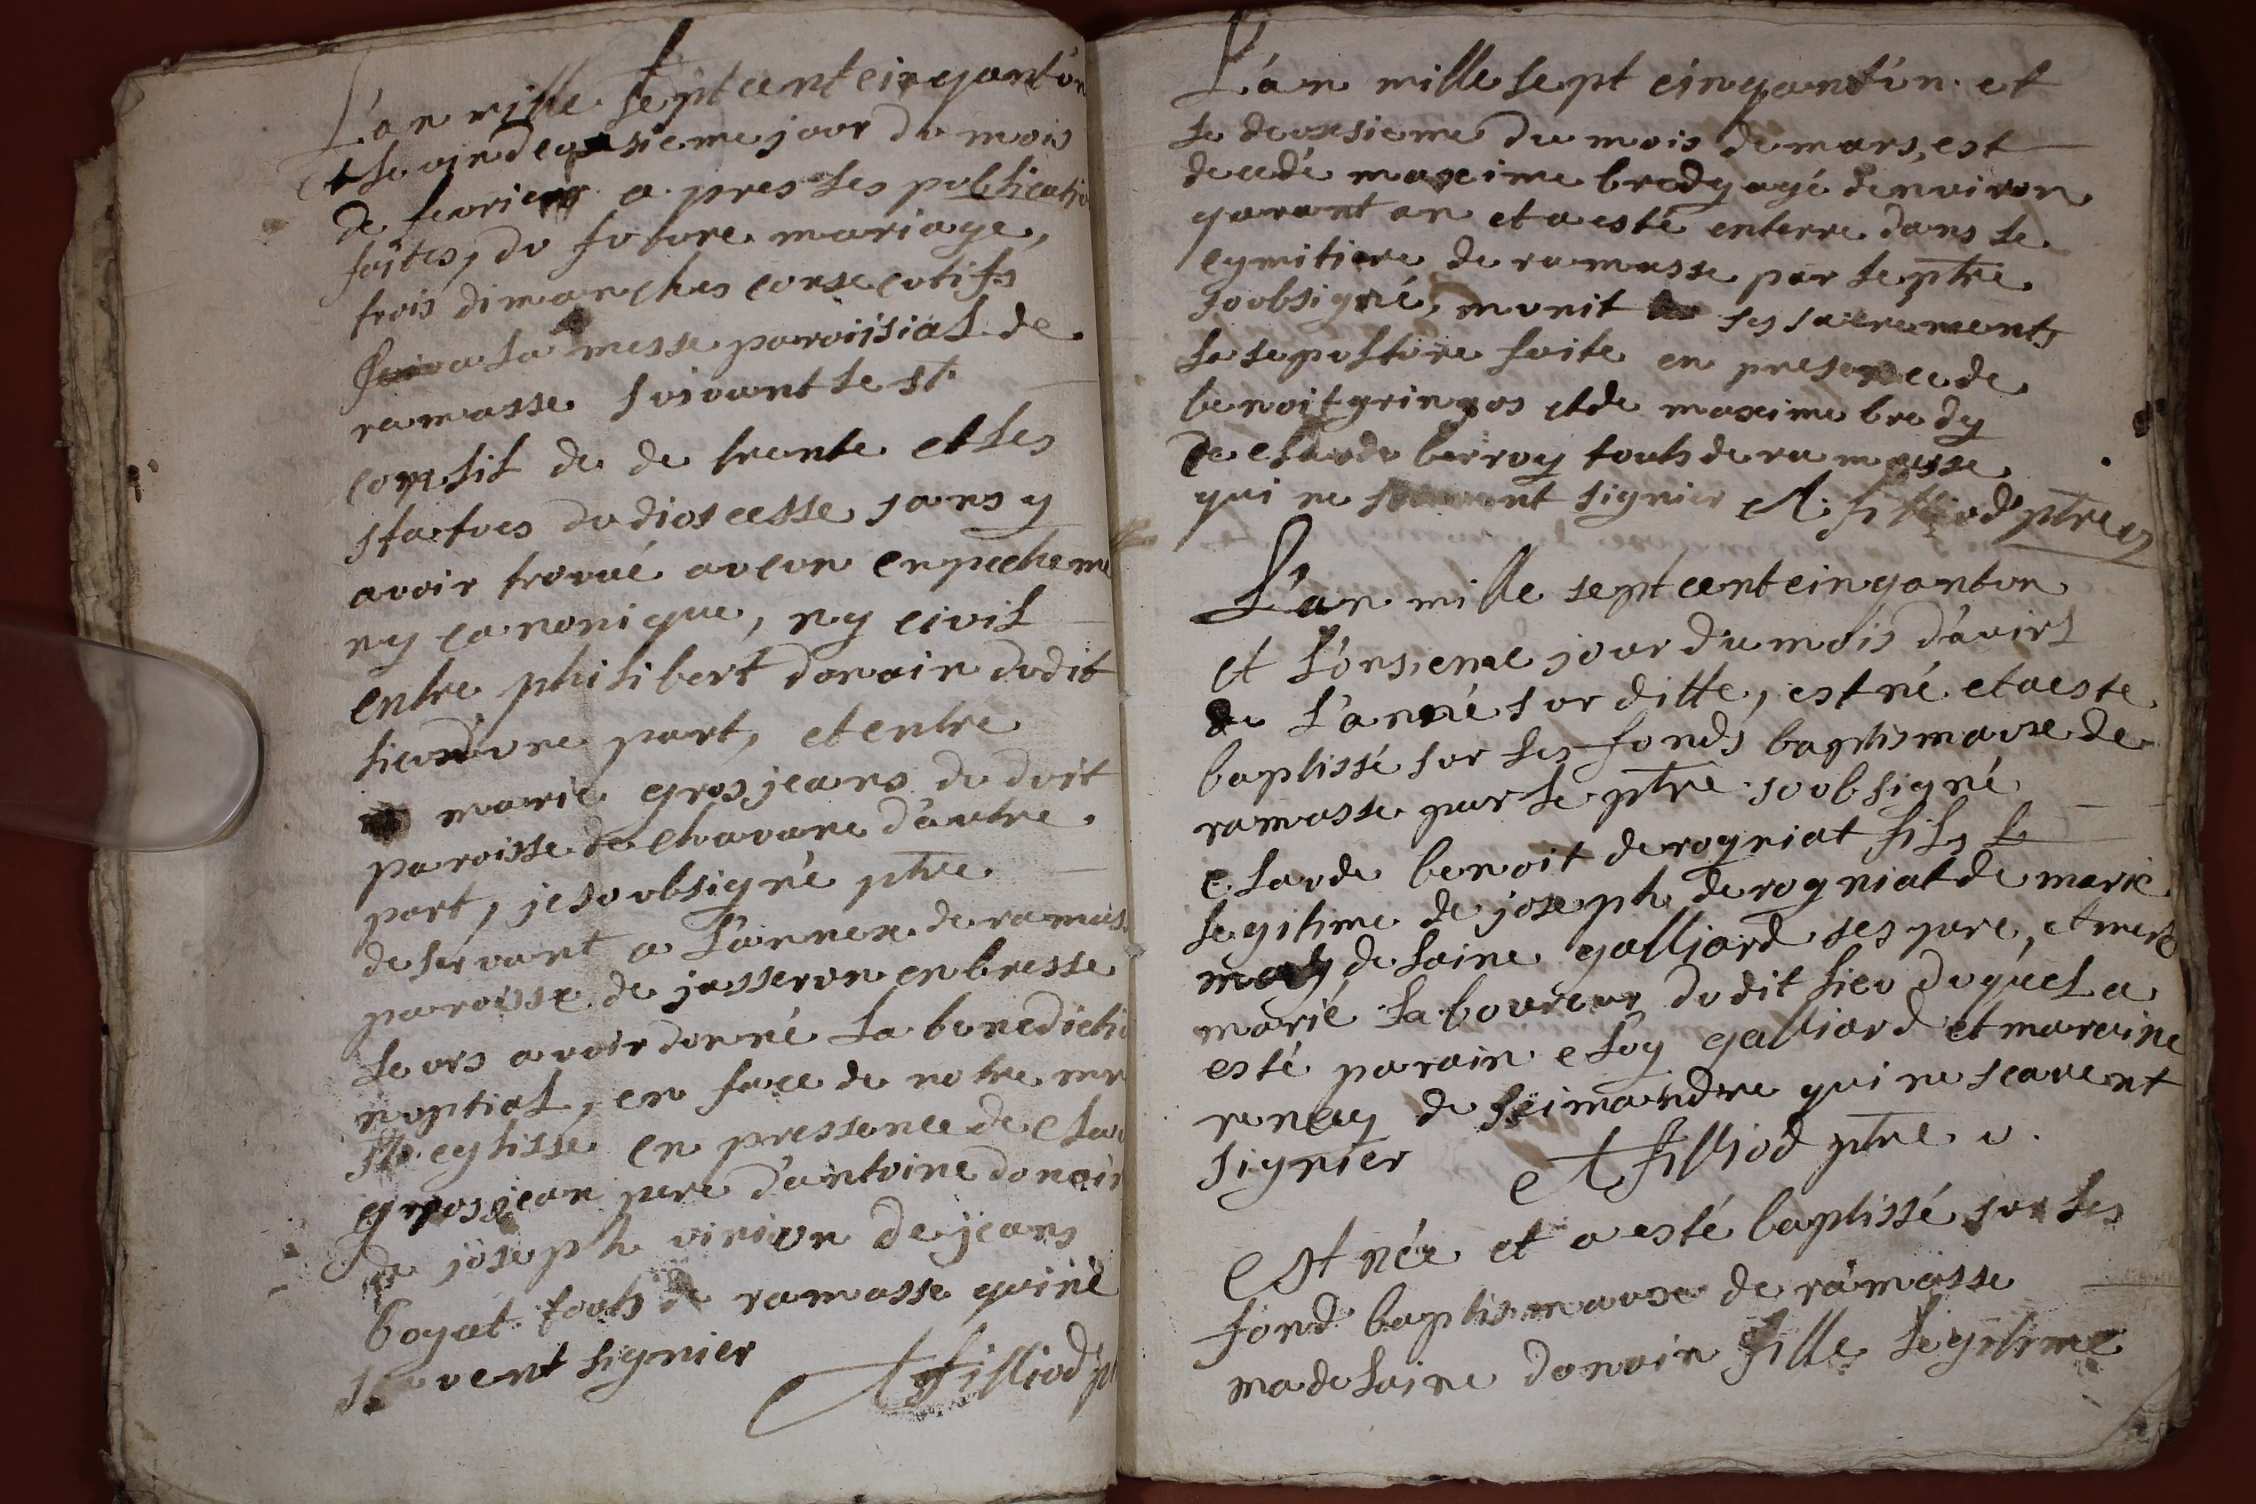 L'an mille septcent cinqantun
et le vindeusieme jour du mois
de fevrier apres les publicatio
faites, du future mariage,
trois dimanches consecutifs
a la messe paroiisial de
ramasse suivant le st
consil de de trente et les
statues du diocesse sans y
avoir trouvé aucun enpecheme
ny canonique, ny civil
entre philibert donain dudit
lieu d'une part, et entre
marie grosjeans du duit
paroisse de chavane d'autre
part, je soubsigné ptre
deservant a l'annex de ramas
paroisse de jasseron en bresse
leurs avoir donné la benedictio
nuptial, en face de notre mer
ste eglisse en pressence de clau
grosjean pere d'antoine donain
de joseph virion de jeans
boyat touts de ramasse qui ne
scavent signier
A filliod pt
L'an mille sept cinqantun et
le deusieme du mois de mars, est
decedé maxime bredy agé denviron
qarant an et a esté enterre dans le
cymitiere de ramasse par le ptre
soubsigné, munit ses sacrements
la sepulture faite en presence de
benoit gringos et de maxime bredy
de claude berroy touts de ramasse
qui ne scavent signier A. filliod ptre v
L'an mille septcent cinqantun
et l'onsieme jour du mois d'avirl
de l'anné sur ditte, est né et a este
baptissé sur les fonds baptismaux de
ramasse par le ptre soubsigné
claude benoit derogniat fils
legitime de joseph derogniat de marie
madelaine galliard ses pere, et mere
marié laboureur dudit lieu duquel a
esté parain eloy galliard et maraine
renay de seimandre qui ne scavent
signier A filliod ptre v.
Est née et a esté baptissé sur les
fond baptismaux de ramasse
madelaine donain fille legitime